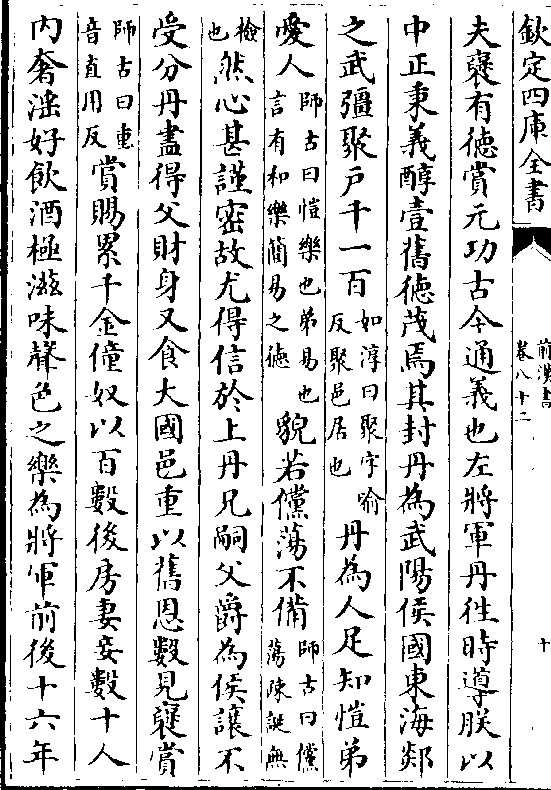 欽定四庫全書
前漢書
卷八十二
十
夫襃有徳賞元功古今通義也左將軍丹徃時導朕以
中正秉義醇壹舊徳茂焉其封丹為武陽侯國東海郯
之武彊聚户千一百如淳曰聚字喻反聚邑居也丹為人足知愷弟
愛人師古曰愷樂也弟易也言有和樂簡易之徳貌若儻蕩不備師古曰儻蕩疎誕無
檢也然心甚謹密故尤得信於上丹兄嗣父爵為侯讓不
受分丹盡得父財身又食大國邑重以舊恩數見襃賞
師古曰重音直用反賞賜累千金僮奴以百數後房妻妾數十人
内奢淫好飲酒極滋味聲色之樂為將軍前後十六年